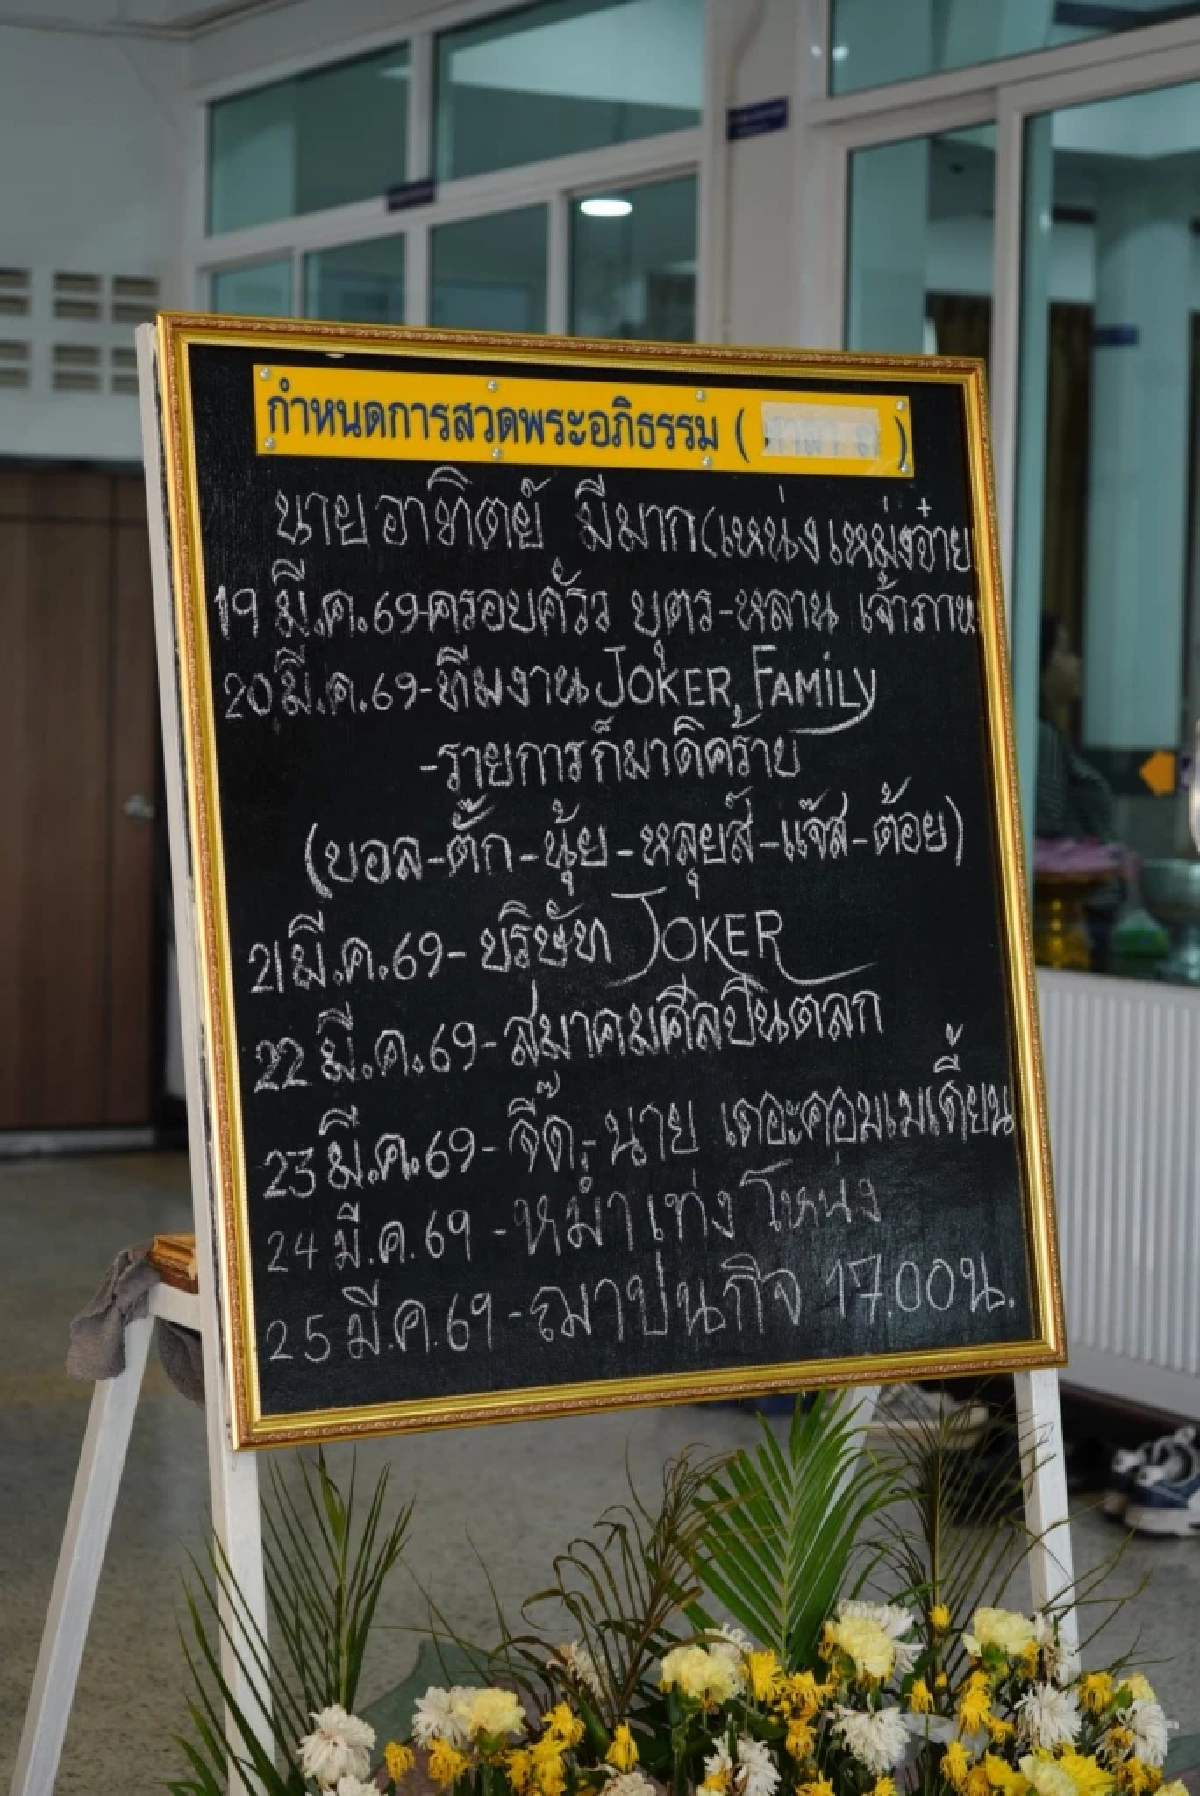 กำหนดการสวดพระอภิธรรม ( ศาลา )
นายอาทิตย์ มีมาก(เหน่งเหม่งจ๋าย
19 มี.ค.69-ครอบครัว บุตร-หลาน เจ้าภาพ
20 มี.ค.69-ทีมงาน JOKER FAMiLy
-รายการก็มาดิคร้าบ
(บอล-ตั๊ก-นุ้ย-หลุยส์-แจ๊ส-ต้อย)
21 มี.ค.69- บริษัท JOKER
22 มี.ค.69-สมาคมศิลปินตลก
23 มี.ค.69-จี๊ด-นาย เดอะคอมเมเดี้ยน
24 มี.ค.69 -หม่ำ เท่ง โหน่ง
25 มี.ค.69 -ฌาปนกิจ 17.00น.